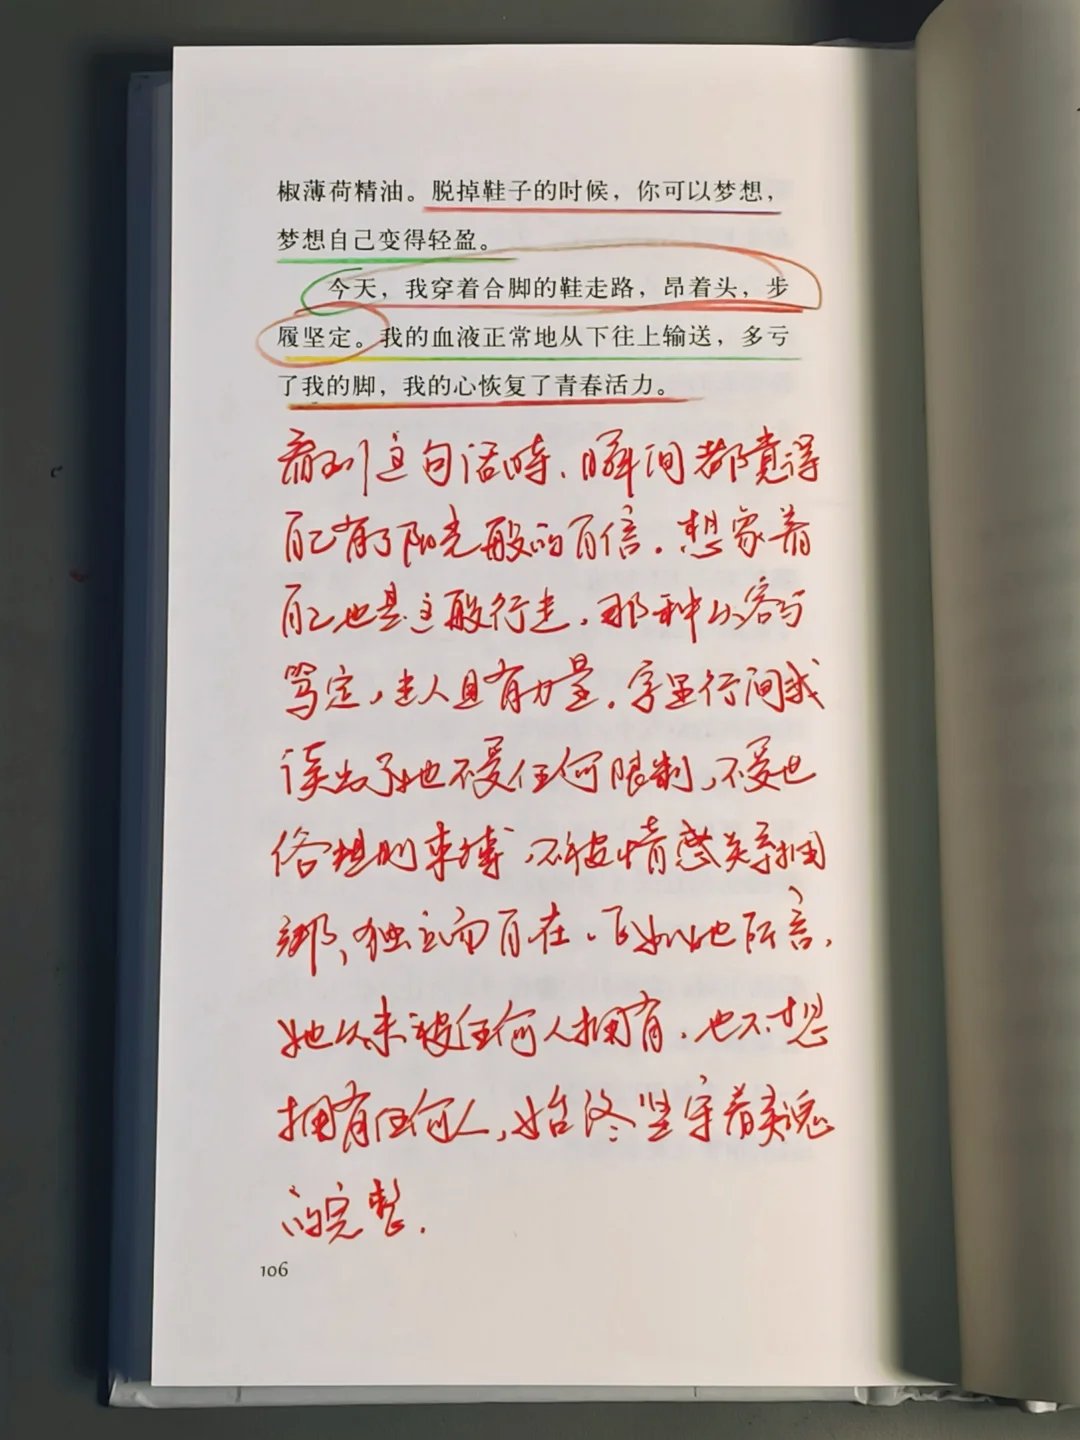 椒薄荷精油。脱掉鞋子的时候，你可以梦想，
梦想自己变得轻盈。
今天，我穿着合脚的鞋走路，昂着头，步
履坚定。我的血液正常地从下往上输送，多亏
了我的脚，我的心恢复了青春活力。
看到这句话时、瞬间都觉得
自己有了阳光般的自信。想象着
自己也是这般行走，那种从容与
笃定，迷人且有力量。字里行间我
读出了她不受任何限制，不受世
俗规则束缚，不被情感关系捆
绑，独立而自在。正如她所言，
她从未被任何人拥有，也不想
拥有任何人，始终坚守着灵魂
的完整.
106